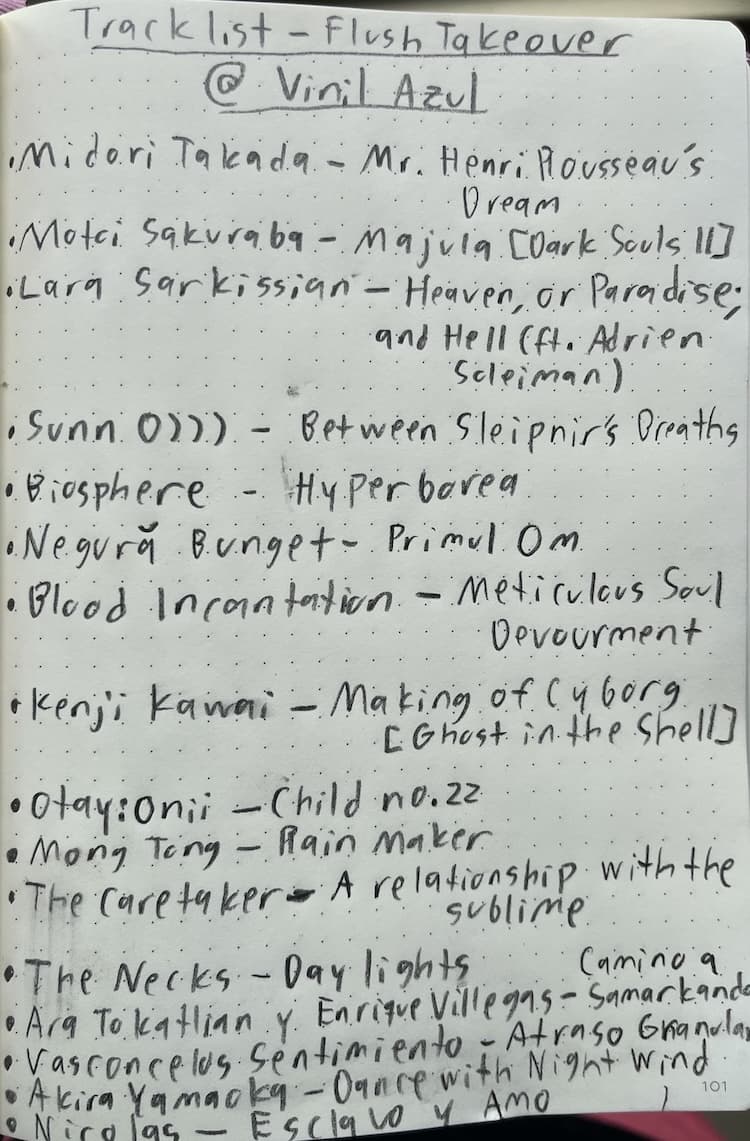 Tracklist - Flush Takeover
@ Vinil Azul
• Midori Takada - Mr. Henri Rousseau's
Dream
• Motoi Sakuraba - Majula [Dark Souls II]
• Lara Sarkissian - Heaven, or Paradise;
and Hell (ft. Adrien
Soleiman)
• Sunn O))) - Between Sleipnir's Breaths
• Biosphere - Hyperborea
• Negură Bunget - Primul Om
• Blood Incantation - Meticulous Soul
Devourment
• Kenji Kawai - Making of Cyborg
[Ghost in the Shell]
• Otay:onii - Child no.22
• Mong Tong - Rain Maker
• The Caretaker - A relationship with the
sublime
• The Necks - Daylights
• Ara Tokatlian y Enrique Villegas - Camino a
Samarkanda
• Vasconcelos Sentimento - Atraso Granular
• Akira Yamaoka - Dance with Night Wind
• Nicolas - Esclavo y Amo
101